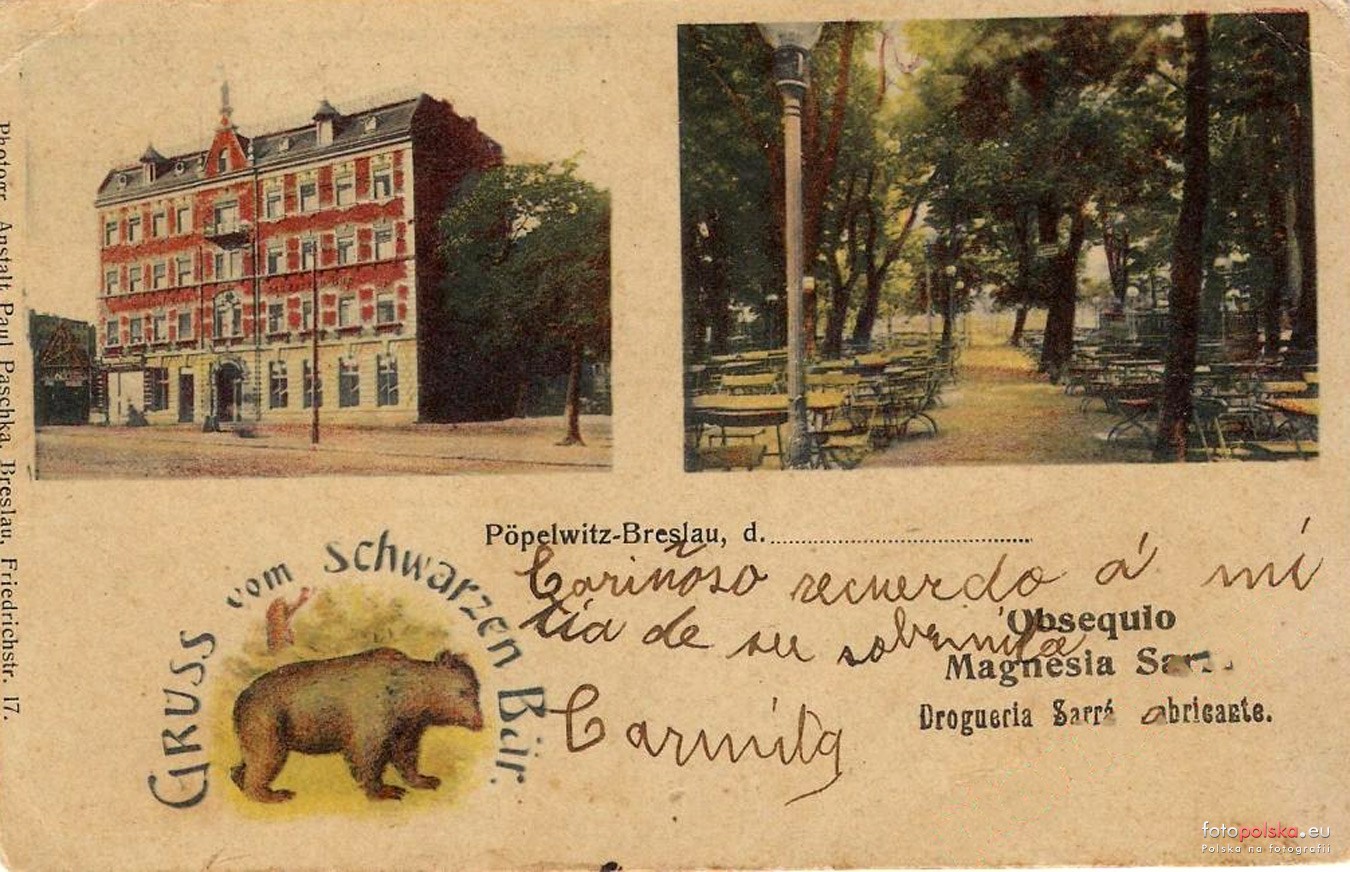 Photogr. Anstalt Paul Paschka, Breslau, Friedrichstr. 17.
Pöpelwitz-Breslau, d.
GRUSS vom Schwarzen Bär.
Cariñoso recuerdo á mi
tia de su sobrinita
Carmita
Obsequio
Magnesia
Drogueria Sarrá
fotopolska.eu
Polska na fotografii